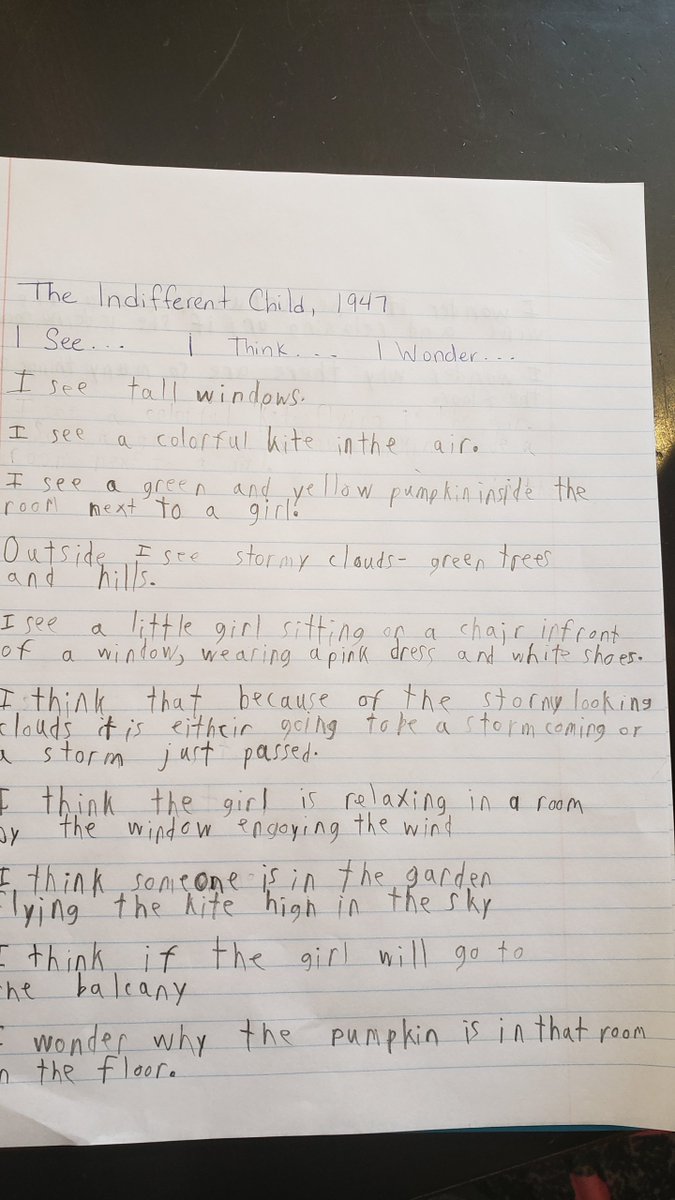 The Indifferent Child, 1947
I See... I Think... I Wonder...
I see tall windows.
I see a colorful kite inthe air.
I see a green and yellow pumpkin inside the
room next to a girl.
Outside I see stormy clouds- green trees
and hills.
I see a little girl sitting on a chair infront
of a window, wearing a pink dress and white shoes.
I think that because of the stormy looking
clouds it is eitheir going to be a storm coming or
a storm just passed.
I think the girl is relaxing in a room
by the window engoying the wind
I think someone is in the garden
flying the kite high in the sky
I think if the girl will go to
the balcany
I wonder why the pumpkin is in that room
n the floor.